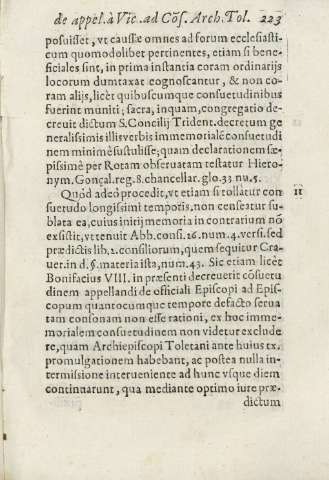 de appel. à Vic. ad Cõs. Arch. Tol. 223
posuisset, vt causæ omnes ad forum ecclesiasti
cum quomodolibet pertinentes, etiam si bene
ficiales sint, in prima instantia coram ordinarijs
locorum dumtaxat cognoscantur, & non co
ram alijs, licèt quibuscumque consuetudinibus
fuerint muniti; sacra, inquam, congregatio de
creuit dictum S. Concilij Trident. decretum ge
neralissimis illis verbis immemorialẽ consuetudi
nem minimè sustulisse; quam declarationem sæ-
pissimè per Rotam obseruatam testatur Hiero-
nym. Gonçal. reg. 8. chancellar. glo. 33. nu. 5.
Quòd adeò procedit, vt etiam si tollatur con 11
suetudo longissimi temporis, non censeatur su-
blata ea, cuius initij memoria in contrarium nõ
exsistit, vt tenuit Abb. consi. 16. num. 4. versi. sed
prædictis lib. 1. consiliorum, quem sequitur Cra-
uer. in d. §. materia ista, num. 43. Sic etiam licèt
Bonifacius VIII. in præsenti decreuerit cõsuetu
dinem appellandi de officiali Episcopi ad Epis-
copum quantocumque tempore defacto serua
tam consonam non esse rationi, ex hoc imme-
morialem consuetudinem non videtur exclude
re, quam Archiepiscopi Toletani ante huius tx.
promulgationem habebant, ac postea nulla in-
termissione interueniente ad hunc vsque diem
continuarunt, qua mediante optimo iure præ-
dictum